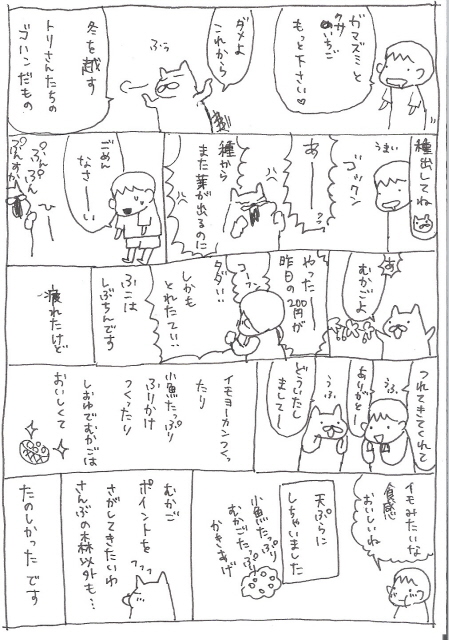 ガマズミと
クサ
いちご
もっと下さい♡
ダメよ
これから
ぶぅ
冬を越す
トリさんたちの
ゴハンだもの
種出してね
うまい
ゴックン
あーーっ
種から
また芽が出るのに
ごめん
なさーい
ひー
ぷんぷん
ぷんすか
あ
むかごよ
やったー
昨日の200円が
コーフン
タダ!!
しかも
とれたて!!
ぶこは
しぶちんです
疲れたけど
つれてきてくれて
ありがとー
うふ
うふ
どういたし
まして
イモヨーカンつくっ
たり
小魚たっぷり
ふりかけ
つくったり
しおゆでむかごは
おいしくて
イモみたいな
食感
おいしいね
天ぷらに
しちゃいました
小魚たっぷり
むかごたっぷり
かきあげ
むかご
ポイントを
さがしてきたいわ
さんぶの森以外も…
フフフ
たのしかったです